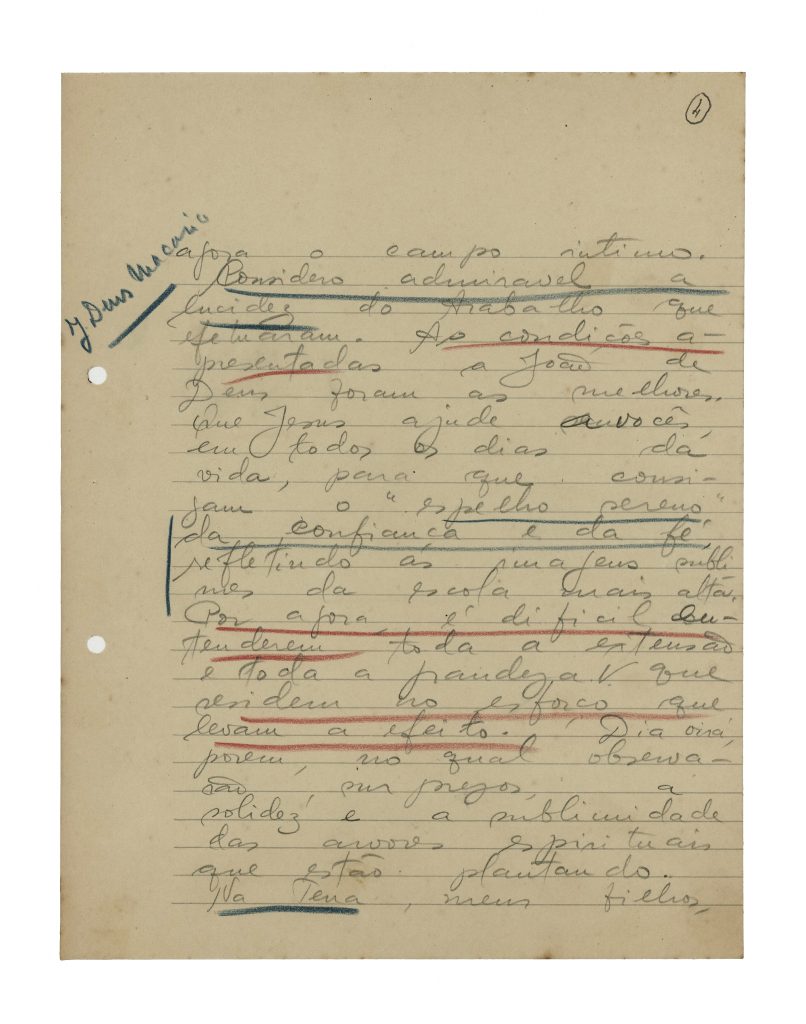 4
J Deus Macario
agora o campo intimo.
Considero admiravel a
lucidez do trabalho que
efetuaram. As condições a-
presentadas a João de
Deus foram as melhores.
Que Jesus ajude a vocês,
em todos os dias da
vida, para que consi-
gam o "espelho sereno"
da confiança e da fé,
refletindo as imagens subli
mes da escola mais alta.
Por agora, é dificil en-
tenderem toda a extensão
e toda a grandeza que
residem no esforço que
levam a efeito. Dia virá,
porem, no qual observa-
rão, surpresos, a
solidez e a sublimidade
das arvores espirituais
que estão plantando.
Na Terra, meus filhos,